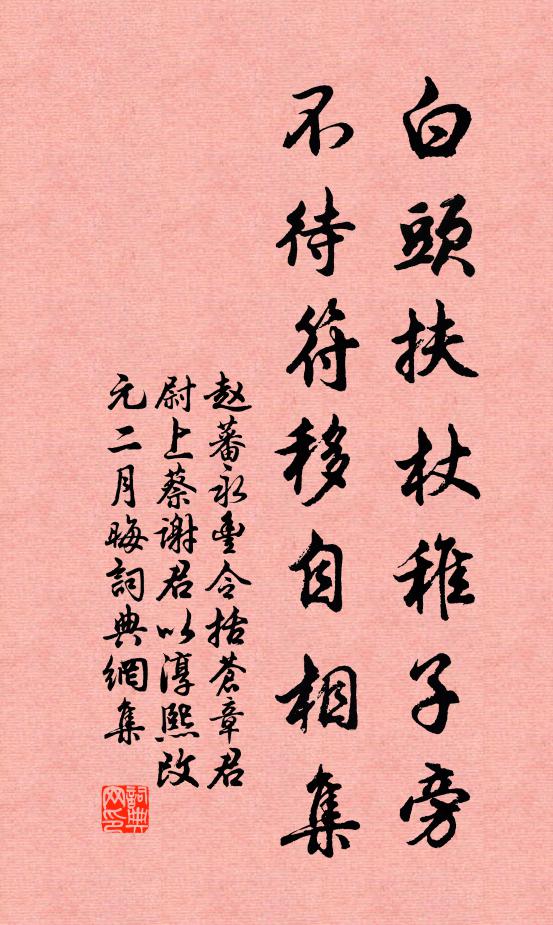 白頭扶杖稚子旁
不待符移自相集
赵蕃永豊令括蒼章君
尉上蔡谢君以淳熙改
元二月晦詞典網集
詞典
网印